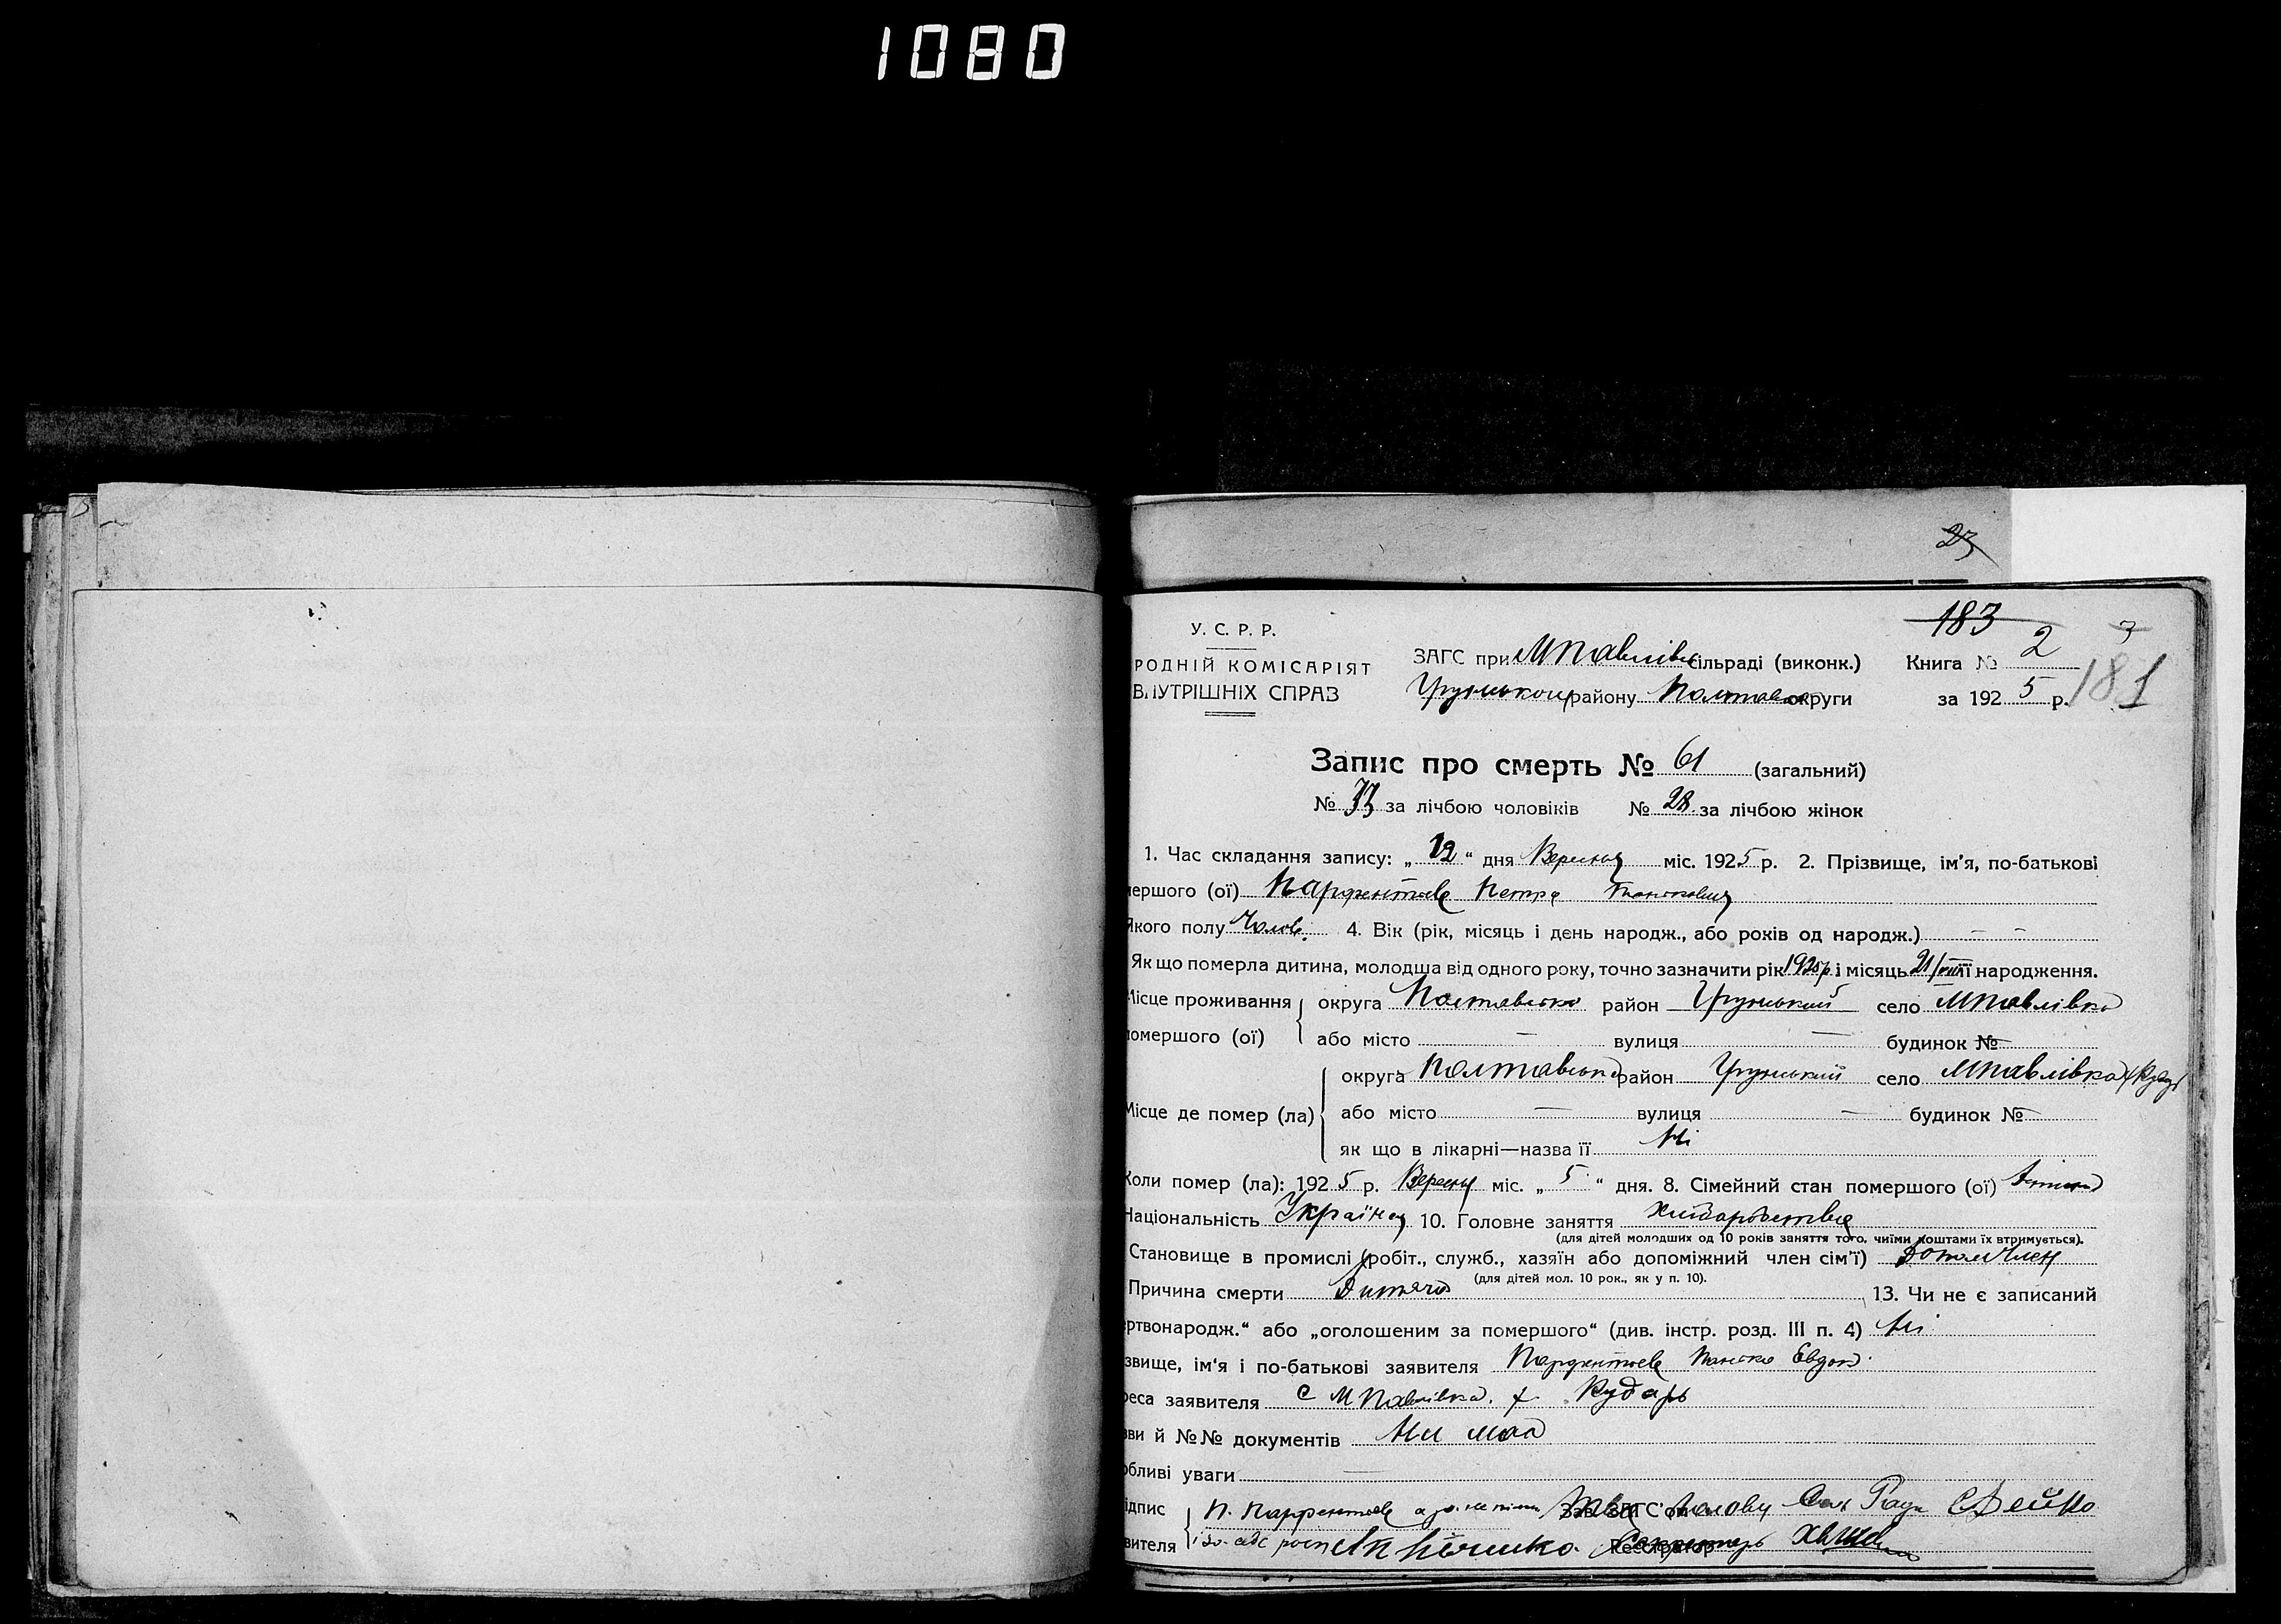 1080
23
183
У. С. Р. Р.
РОДНІЙ КОМІСАРІЯТ
ВНУТРІШНІХ СПРАВ
ЗАГС при МПавлівс сільраді (виконк.) Книга № 2 3
Грунськом району Полтавськ округи за 192 5 р. 181
Запис про смерть № 61 (загальний)
№ 33 за лічбою чоловіків № 28. за лічбою жінок
1. Час складання запису: „ 12 “ дня Вересня міс. 192 5 р. 2. Прізвище, ім'я, по-батькові
мершого (ої) Парфентьєв Петро
Якого полу Чолов. 4. Вік (рік, місяць і день народж., або років од народж.) — —
Як що померла дитина, молодша від одного року, точно зазначити рік 1925 р. і місяць 21/VIII її народження.
Місце проживання округа Полтавська район Грунський село МПавлівка
помершого (ої) або місто — вулиця — будинок № —
округа Полтавська район Грунський село МПавлівка
Місце де помер (ла) або місто — вулиця — будинок № —
як що в лікарні—назва її Ні
Коли помер (ла): 192 5 р. Вересня міс. „ 5 “ дня. 8. Сімейний стан помершого (ої)
Національність Українец 10. Головне заняття Хліборобство
(для дітей молодших од 10 років заняття того, чиїми коштами їх втримується).
Становище в промислі (робіт., служб., хазяїн або допоміжний член сім'ї) Допом член
(для дітей мол. 10 рок., як у п. 10).
Причина смерти Дитяча 13. Чи не є записаний
ертвонародж.“ або „оголошеним за помершого“ (див. інстр. розд. III п. 4) Ні
звище, ім'я і по-батькові заявителя Парфентьєв Панько Евдок.
реса заявителя С МПавлівка. х Кударь
зви й №№ документів Ни має
обливі уваги —
ідпис П. Парфентьєв Зав. ЗАГС'ом Голову Сил Ради
вителя Реєстратор Секретарь